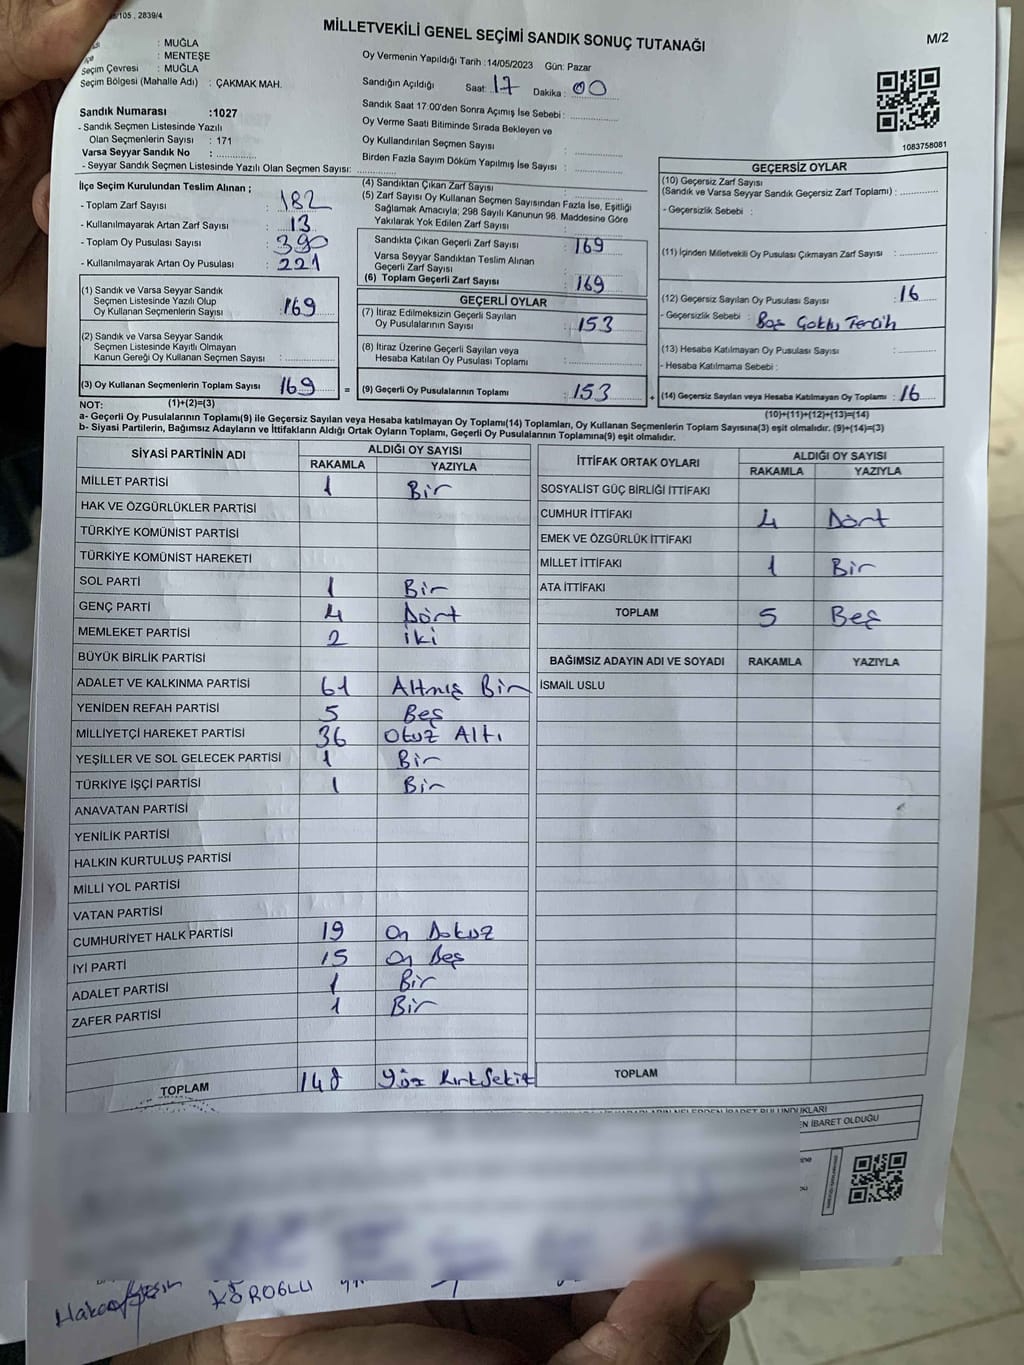 /105 , 2839/4
MİLLETVEKİLİ GENEL SEÇİMİ SANDIK SONUÇ TUTANAĞI
M/2
: MUĞLA
: MENTEŞE
Seçim Çevresi : MUĞLA
Seçim Bölgesi (Mahalle Adı) : ÇAKMAK MAH.
Sandık Numarası :1027
- Sandık Seçmen Listesinde Yazılı
Olan Seçmenlerin Sayısı : 171
Varsa Seyyar Sandık No :
- Seyyar Sandık Seçmen Listesinde Yazılı Olan Seçmen Sayısı:
Oy Vermenin Yapıldığı Tarih :14/05/2023 Gün: Pazar
Sandığın Açıldığı Saat: 17 Dakika : 00
Sandık Saat 17:00'den Sonra Açımış İse Sebebi :
Oy Verme Saati Bitiminde Sırada Bekleyen ve
Oy Kullandırılan Seçmen Sayısı :
Birden Fazla Sayım Döküm Yapılmış İse Sayısı :
1083758081
İlçe Seçim Kurulundan Teslim Alınan ;
- Toplam Zarf Sayısı : 182
- Kullanılmayarak Artan Zarf Sayısı : 13
- Toplam Oy Pusulası Sayısı : 390
- Kullanılmayarak Artan Oy Pusulası : 221
(1) Sandık ve Varsa Seyyar Sandık
Seçmen Listesinde Yazılı Olup
Oy Kullanan Seçmenlerin Sayısı : 169
(2) Sandık ve Varsa Seyyar Sandık
Seçmen Listesinde Kayıtlı Olmayan
Kanun Gereği Oy Kullanan Seçmen Sayısı :
(3) Oy Kullanan Seçmenlerin Toplam Sayısı : 169 =
(4) Sandıktan Çıkan Zarf Sayısı :
(5) Zarf Sayısı Oy Kullanan Seçmen Sayısından Fazla İse, Eşitliği
Sağlamak Amacıyla; 298 Sayılı Kanunun 98. Maddesine Göre
Yakılarak Yok Edilen Zarf Sayısı :
Sandıkta Çıkan Geçerli Zarf Sayısı : 169
Varsa Seyyar Sandıktan Teslim Alınan
Geçerli Zarf Sayısı :
(6) Toplam Geçerli Zarf Sayısı : 169
GEÇERLİ OYLAR
(7) İtiraz Edilmeksizin Geçerli Sayılan
Oy Pusulalarının Sayısı : 153
(8) İtiraz Üzerine Geçerli Sayılan veya
Hesaba Katılan Oy Pusulaları Toplamı :
(9) Geçerli Oy Pusulalarının Toplamı : 153 +
GEÇERSİZ OYLAR
(10) Geçersiz Zarf Sayısı
(Sandık ve Varsa Seyyar Sandık Geçersiz Zarf Toplamı) :
- Geçersizlik Sebebi :
(11) İçinden Milletvekili Oy Pusulası Çıkmayan Zarf Sayısı :
(12) Geçersiz Sayılan Oy Pusulası Sayısı : 16
- Geçersizlik Sebebi : Boş Çoklu Tercih
(13) Hesaba Katılmayan Oy Pusulası Sayısı :
- Hesaba Katılmama Sebebi :
(14) Geçersiz Sayılan veya Hesaba Katılmayan Oy Toplamı : 16
NOT: (1)+(2)=(3) (10)+(11)+(12)+(13)=(14)
a- Geçerli Oy Pusulalarının Toplamı(9) ile Geçersiz Sayılan veya Hesaba katılmayan Oy Toplamı(14) Toplamları, Oy Kullanan Seçmenlerin Toplam Sayısına(3) eşit olmalıdır. (9)+(14)=(3)
b- Siyasi Partilerin, Bağımsız Adayların ve İttifakların Aldığı Ortak Oyların Toplamı, Geçerli Oy Pusulalarının Toplamına(9) eşit olmalıdır.
SİYASİ PARTİNİN ADI ALDIĞI OY SAYISI
RAKAMLA YAZIYLA
MİLLET PARTİSİ 1 Bir
HAK VE ÖZGÜRLÜKLER PARTİSİ
TÜRKİYE KOMÜNİST PARTİSİ
TÜRKİYE KOMÜNİST HAREKETİ
SOL PARTİ 1 Bir
GENÇ PARTİ 4 Dört
MEMLEKET PARTİSİ 2 iki
BÜYÜK BİRLİK PARTİSİ
ADALET VE KALKINMA PARTİSİ 61 Altmış Bir
YENİDEN REFAH PARTİSİ 5 Beş
MİLLİYETÇİ HAREKET PARTİSİ 36 Otuz Altı
YEŞİLLER VE SOL GELECEK PARTİSİ 1 Bir
TÜRKİYE İŞÇİ PARTİSİ 1 Bir
ANAVATAN PARTİSİ
YENİLİK PARTİSİ
HALKIN KURTULUŞ PARTİSİ
MİLLİ YOL PARTİSİ
VATAN PARTİSİ
CUMHURİYET HALK PARTİSİ 19 On Dokuz
İYİ PARTİ 15 On Beş
ADALET PARTİSİ 1 Bir
ZAFER PARTİSİ 1 Bir
TOPLAM 148 Yüz Kırk Sekiz
İTTİFAK ORTAK OYLARI ALDIĞI OY SAYISI
RAKAMLA YAZIYLA
SOSYALİST GÜÇ BİRLİĞİ İTTİFAKI
CUMHUR İTTİFAKI 4 Dört
EMEK VE ÖZGÜRLÜK İTTİFAKI
MİLLET İTTİFAKI 1 Bir
ATA İTTİFAKI
TOPLAM 5 Beş
BAĞIMSIZ ADAYIN ADI VE SOYADI RAKAMLA YAZIYLA
İSMAİL USLU
TOPLAM
EN İBARET OLDUĞU
KÖROĞLU